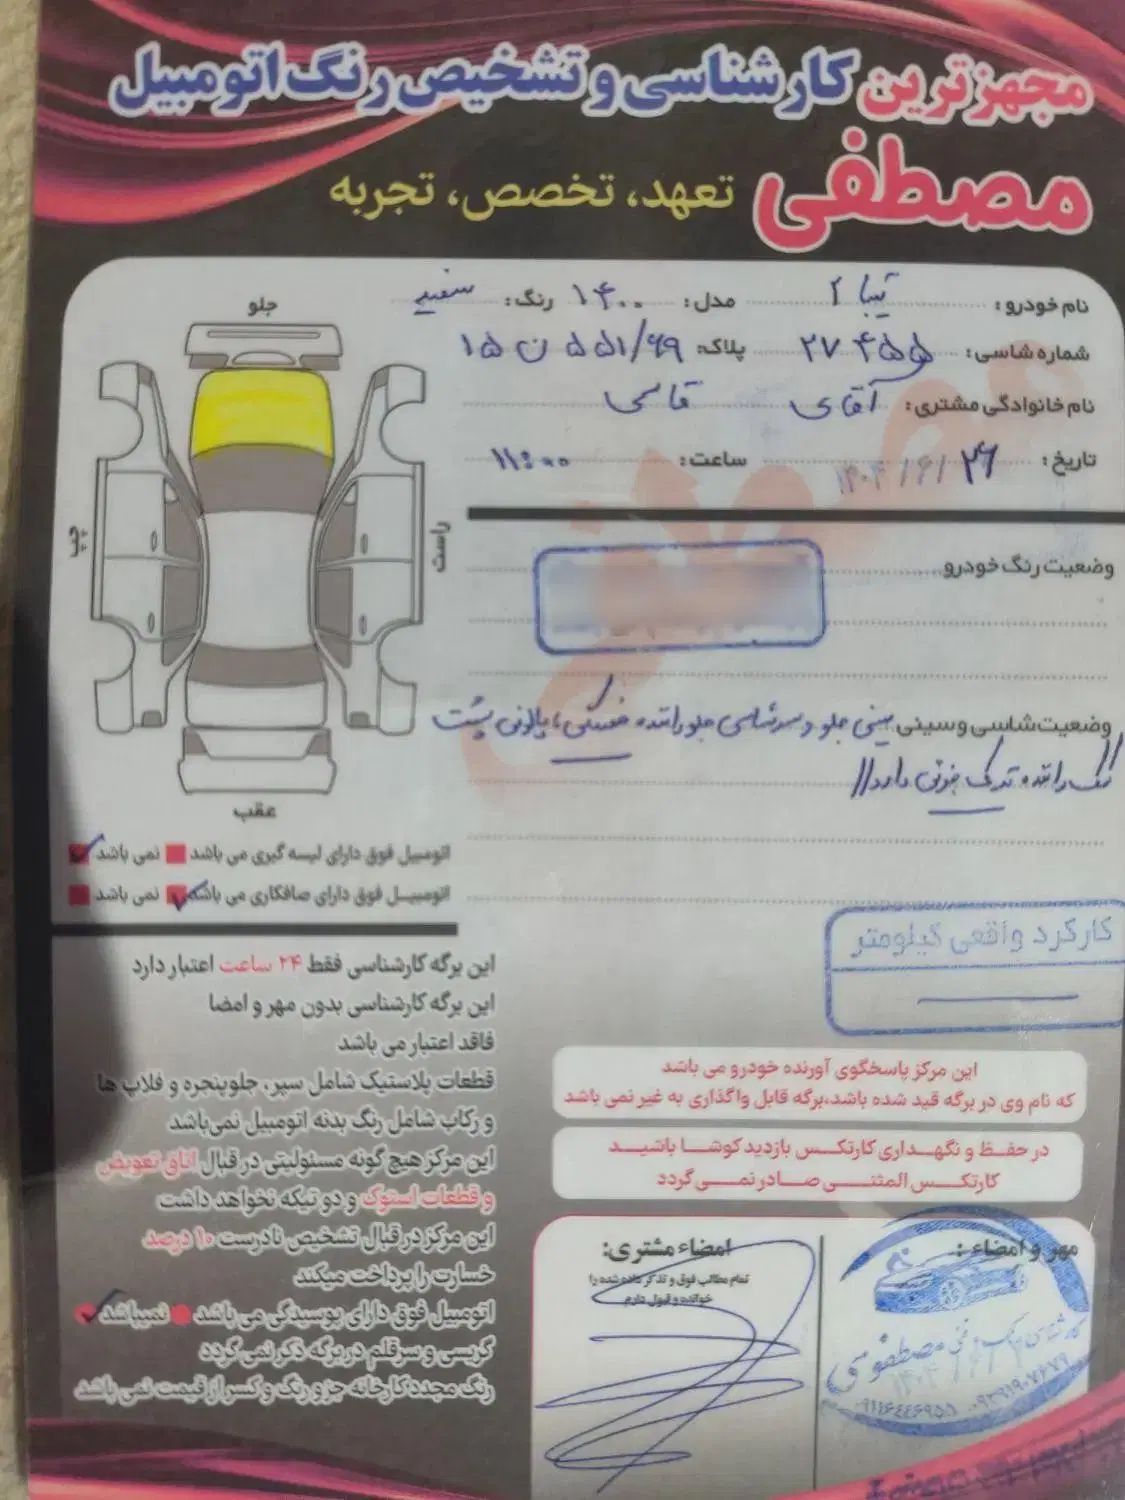 مجهزترین کارشناسی و تشخیص رنگ اتومبیل
مصطفی تعهد، تخصص، تجربه
نام خودرو: تیبا ۲ مدل: ۱۴۰۰ رنگ: سفید
شماره شاسی: ۲۷۴۵۵ پلاک: ۶۹/۵۵۱ ن ۱۵
نام خانوادگی مشتری: آقای قاسمی
تاریخ: ۲۶ / ۶ / ۱۴۰۴ ساعت: ۱۱:۰۰
جلو
چپ
راست
عقب
وضعیت رنگ خودرو
وضعیت شاسی و سینی سینی جلو و سرشاسی جلو راننده خستگی، پالونی پشت
راننده ترک خونی دارد//
اتومبیل فوق دارای لیسه گیری می باشد نمی باشد
اتومبیل فوق دارای صافکاری می باشد نمی باشد
کارکرد واقعی کیلومتر
این برگه کارشناسی فقط ۲۴ ساعت اعتبار دارد
این برگه کارشناسی بدون مهر و امضا
فاقد اعتبار می باشد
قطعات پلاستیک شامل سپر، جلوپنجره و فلاپ ها
و رکاب شامل رنگ بدنه اتومبیل نمی‌باشد
این مرکز هیچ گونه مسئولیتی در قبال اتاق تعویض
و قطعات استوک و دو تیکه نخواهد داشت
این مرکز در قبال تشخیص نادرست ۱۰ درصد
خسارت را پرداخت میکند
اتومبیل فوق دارای پوسیدگی می باشد نمیباشد
گریسی و سرقلم در برگه ذکر نمی گردد
رنگ مجدد کارخانه جزو رنگ و کسر از قیمت نمی باشد
این مرکز پاسخگوی آورنده خودرو می باشد
که نام وی در برگه قید شده باشد،برگه قابل واگذاری به غیر نمی باشد
در حفظ و نگهداری کارتکس بازدید کوشا باشید
کارتکس المثنی صادر نمی گردد
مهر و امضاء:
امضاء مشتری:
تمام مطالب فوق و تذکر داده شده را
خوانده و قبول دارم